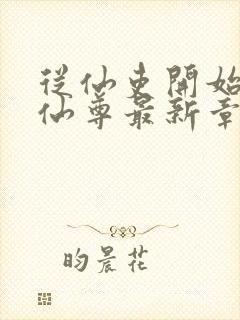 從仙吏開始
仙尊最新章
昀晨花